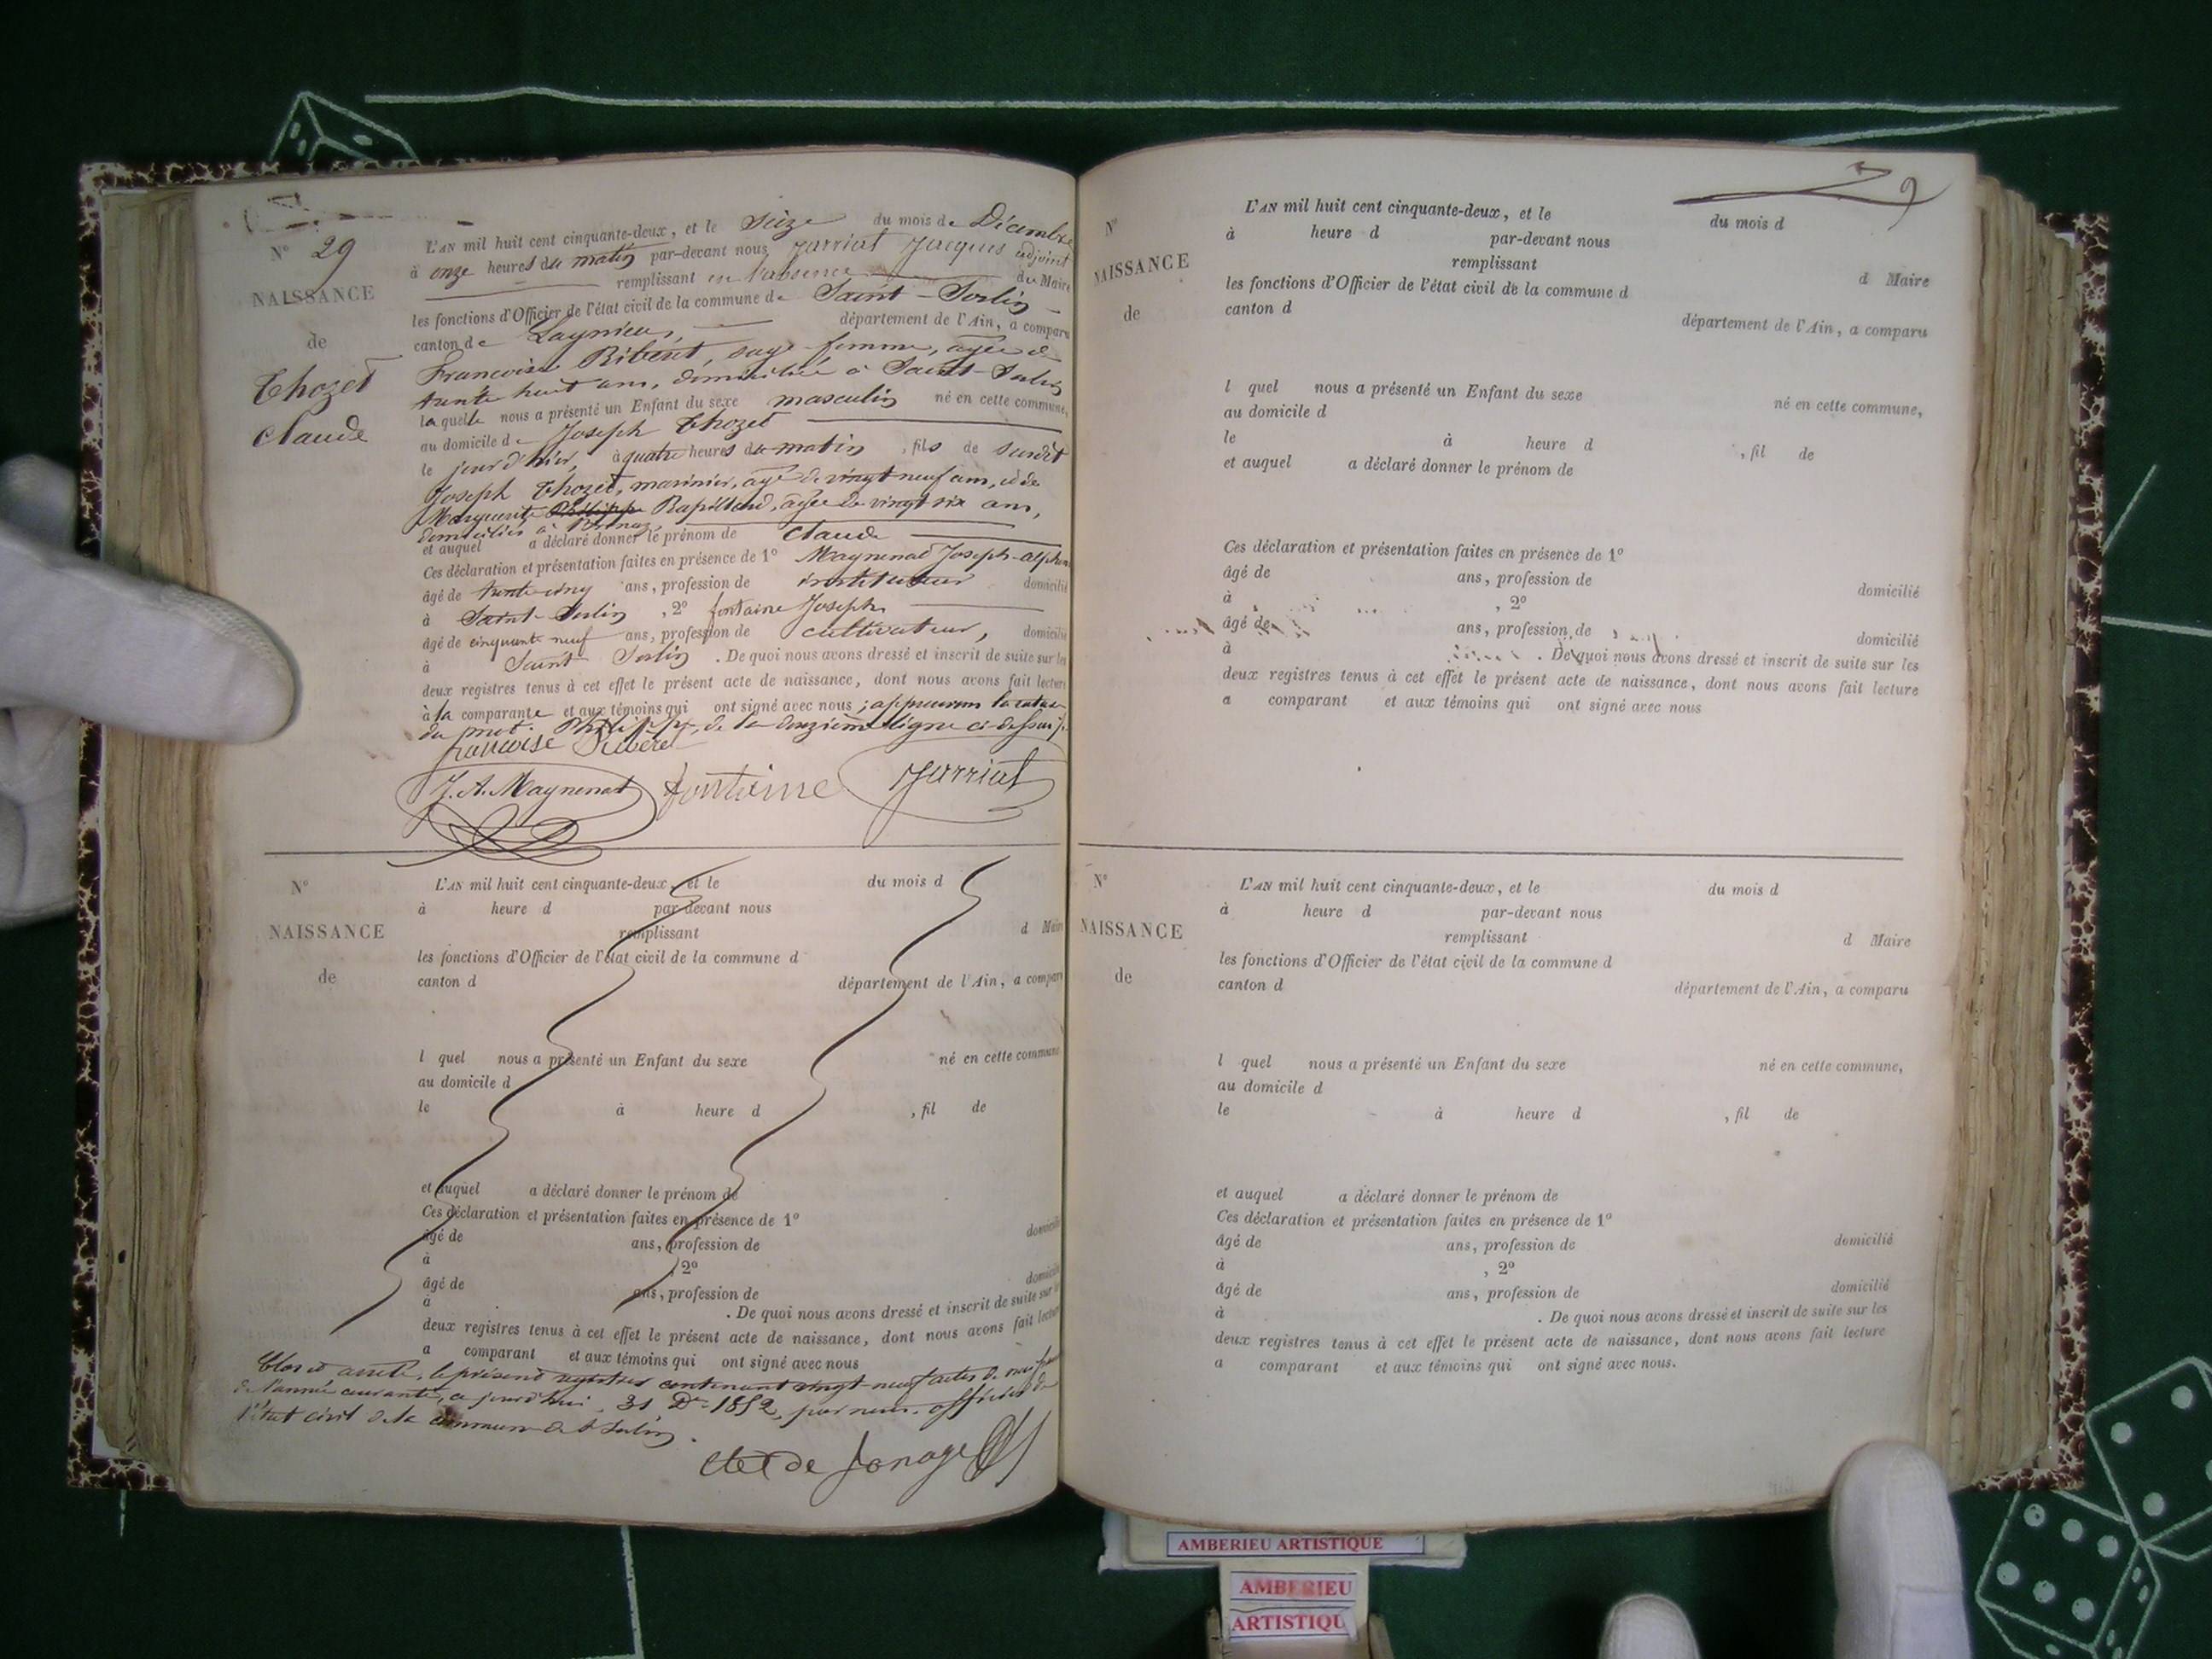 N° 29
NAISSANCE
de
Thozet
Claude
L'AN mil huit cent cinquante-deux, et le Seize du mois de Décembre
à onze heures du matin par-devant nous Jarriat Jacques adjoint
remplissant en l'absence du Maire
les fonctions d'Officier de l'état civil de la commune de Saint-Sorlin
canton de Lagnieu, département de l'Ain, a comparu
Françoise Ribéret, sage-femme, agée de
trente huit ans, domiciliée à Saint-Sorlin
laquelle nous a présenté un Enfant du sexe masculin né en cette commune,
au domicile de Joseph Thozet
le jour d'hier, à quatre heures du matin, fils de susdit
Joseph Thozet, marinier, agé de vingt neuf ans, et de
Marguerite Philippe Rapillard, agée de vingt six ans,
domiciliés à
et auquel a déclaré donner le prénom de Claude
Ces déclaration et présentation faites en présence de 1° Maynenat Joseph-alphon
âgé de trente cinq ans, profession de instituteur domicilié
à Saint-Sorlin, 2° fontaine Joseph
âgé de cinquante neuf ans, profession de cultivateur, domicilié
à Saint Sorlin. De quoi nous avons dressé et inscrit de suite sur les
deux registres tenus à cet effet le présent acte de naissance, dont nous avons fait lecture
à la comparante et aux témoins qui ont signé avec nous; approuvons la ratur
du mot Philippe, de la onzième ligne ci-dessus
françoise Riberet
J. A. Maynenat fontaine Jarriat
N°
NAISSANCE
de
L'AN mil huit cent cinquante-deux, et le du mois d
à heure d par-devant nous
remplissant d Maire
les fonctions d'Officier de l'état civil de la commune d
canton d département de l'Ain, a comparu
l quel nous a présenté un Enfant du sexe né en cette commune
au domicile d
le à heure d , fil de
et auquel a déclaré donner le prénom de
Ces déclaration et présentation faites en présence de 1°
âgé de ans, profession de domicilié
à , 2°
âgé de ans, profession de domicilié
à . De quoi nous avons dressé et inscrit de suite sur les
deux registres tenus à cet effet le présent acte de naissance, dont nous avons fait lecture
a comparant et aux témoins qui ont signé avec nous
Clos et arrêté, le présent registre contenant vingt-neuf actes de naissance
de l'année courante, ce jourd'hui, 31 Dre 1852, par nous, officier de
l'état civil de la commune de St Sorlin.
N°
NAISSANCE
de
L'AN mil huit cent cinquante-deux, et le du mois d
à heure d par-devant nous
remplissant d Maire
les fonctions d'Officier de l'état civil de la commune d
canton d département de l'Ain, a comparu
l quel nous a présenté un Enfant du sexe né en cette commune,
au domicile d
le à heure d , fil de
et auquel a déclaré donner le prénom de
Ces déclaration et présentation faites en présence de 1°
âgé de ans, profession de domicilié
à , 2°
âgé de ans, profession de domicilié
à . De quoi nous avons dressé et inscrit de suite sur les
deux registres tenus à cet effet le présent acte de naissance, dont nous avons fait lecture
a comparant et aux témoins qui ont signé avec nous
N°
NAISSANCE
de
L'AN mil huit cent cinquante-deux, et le du mois d
à heure d par-devant nous
remplissant d Maire
les fonctions d'Officier de l'état civil de la commune d
canton d département de l'Ain, a comparu
l quel nous a présenté un Enfant du sexe né en cette commune,
au domicile d
le à heure d , fil de
et auquel a déclaré donner le prénom de
Ces déclaration et présentation faites en présence de 1°
âgé de ans, profession de domicilié
à , 2°
âgé de ans, profession de domicilié
à . De quoi nous avons dressé et inscrit de suite sur les
deux registres tenus à cet effet le présent acte de naissance, dont nous avons fait lecture
a comparant et aux témoins qui ont signé avec nous.
AMBERIEU ARTISTIQUE
AMBERIEU
ARTISTIQU